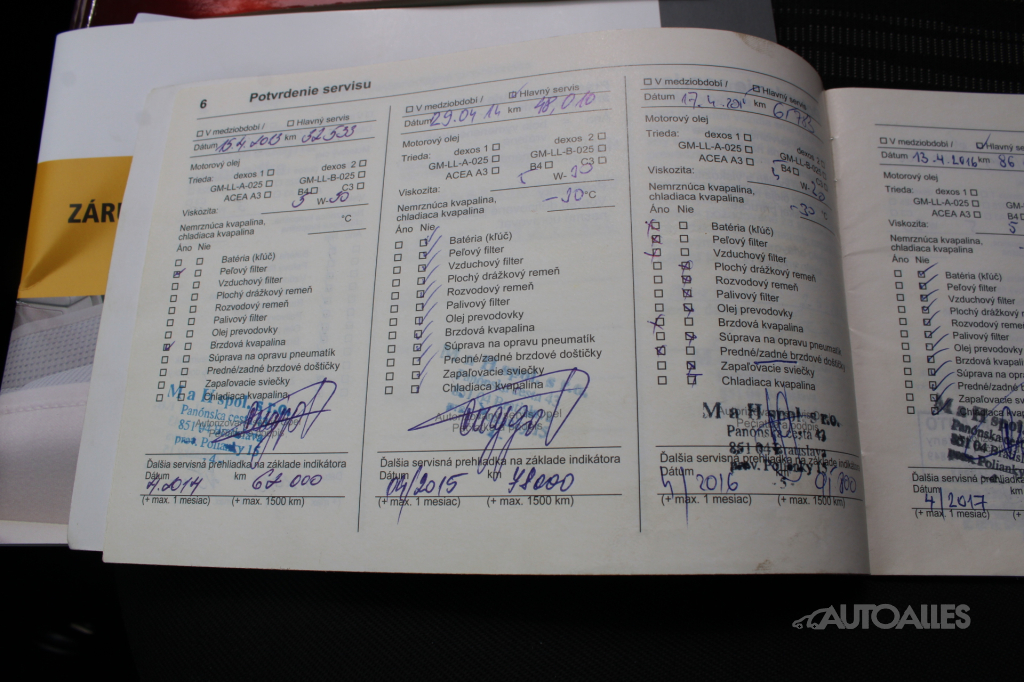 ZÁR
6 Potvrdenie servisu
V medziobdobí / Hlavný servis
Dátum 15.4.2013 km 32533
Motorový olej
Trieda: dexos 1 dexos 2
GM-LL-A-025 GM-LL-B-025
ACEA A3 B4 C3
Viskozita: 5 W-30
Nemrznúca kvapalina,
chladiaca kvapalina °C
Áno Nie
Batéria (kľúč)
Peľový filter
Vzduchový filter
Plochý drážkový remeň
Rozvodový remeň
Palivový filter
Olej prevodovky
Brzdová kvapalina
Súprava na opravu pneumatík
Predné/zadné brzdové doštičky
Zapaľovacie sviečky
Chladiaca kvapalina
M a H spol. s r.o.
Panónska cesta
851 04 Bratislava
prev. Polianky 15
Ďalšia servisná prehliadka na základe indikátora
Dátum km
4.2014 62 000
(+ max. 1 mesiac) (+ max. 1500 km)
V medziobdobí / Hlavný servis
Dátum 29.04 14 km 48,010
Motorový olej
Trieda: dexos 1 dexos 2
GM-LL-A-025 GM-LL-B-025
ACEA A3 B4 C3
Viskozita: W-
Nemrznúca kvapalina,
chladiaca kvapalina °C
Áno Nie
Batéria (kľúč)
Peľový filter
Vzduchový filter
Plochý drážkový remeň
Rozvodový remeň
Palivový filter
Olej prevodovky
Brzdová kvapalina
Súprava na opravu pneumatík
Predné/zadné brzdové doštičky
Zapaľovacie sviečky
Chladiaca kvapalina
Ďalšia servisná prehliadka na základe indikátora
Dátum km
04/2015 78000
(+ max. 1 mesiac) (+ max. 1500 km)
V medziobdobí / Hlavný servis
Dátum 17.4. km
Motorový olej
Trieda: dexos 1 dexos 2
GM-LL-A-025 GM-LL-B-025
ACEA A3 B4 C3
Viskozita: W-
Nemrznúca kvapalina,
chladiaca kvapalina
Áno Nie
Batéria (kľúč)
Peľový filter
Vzduchový filter
Plochý drážkový remeň
Rozvodový remeň
Palivový filter
Olej prevodovky
Brzdová kvapalina
Súprava na opravu pneumatík
Predné/zadné brzdové doštičky
Zapaľovacie sviečky
Chladiaca kvapalina
M a H spol. s r.o.
Panónska cesta 42
851 04 Bratislava
prev. Polianky
Ďalšia servisná prehliadka na základe indikátora
Dátum km
4/2016
(+ max. 1 mesiac) (+ max. 1500 km)
V medziobdobí / Hlavný
Dátum 13.4.2016 km 86
Motorový olej
Trieda: dexos 1
GM-LL-A-025 GM-
ACEA A3
Viskozita: 5
Nemrznúca kvapalina,
chladiaca kvapalina
Áno Nie
Batéria (kľúč)
Peľový filter
Vzduchový filter
Plochý drážkový
Rozvodový remeň
Palivový filter
Olej prevodovky
Brzdová kvapalina
Súprava na opravu
Predné/zadné
Zapaľovacie
Chladiaca
M a H spol.
Panónska
851 04
prev. Polianky
Ďalšia servisná prehliadka
Dátum km
4/2017
(+ max. 1 mesiac)
AUTOALLES